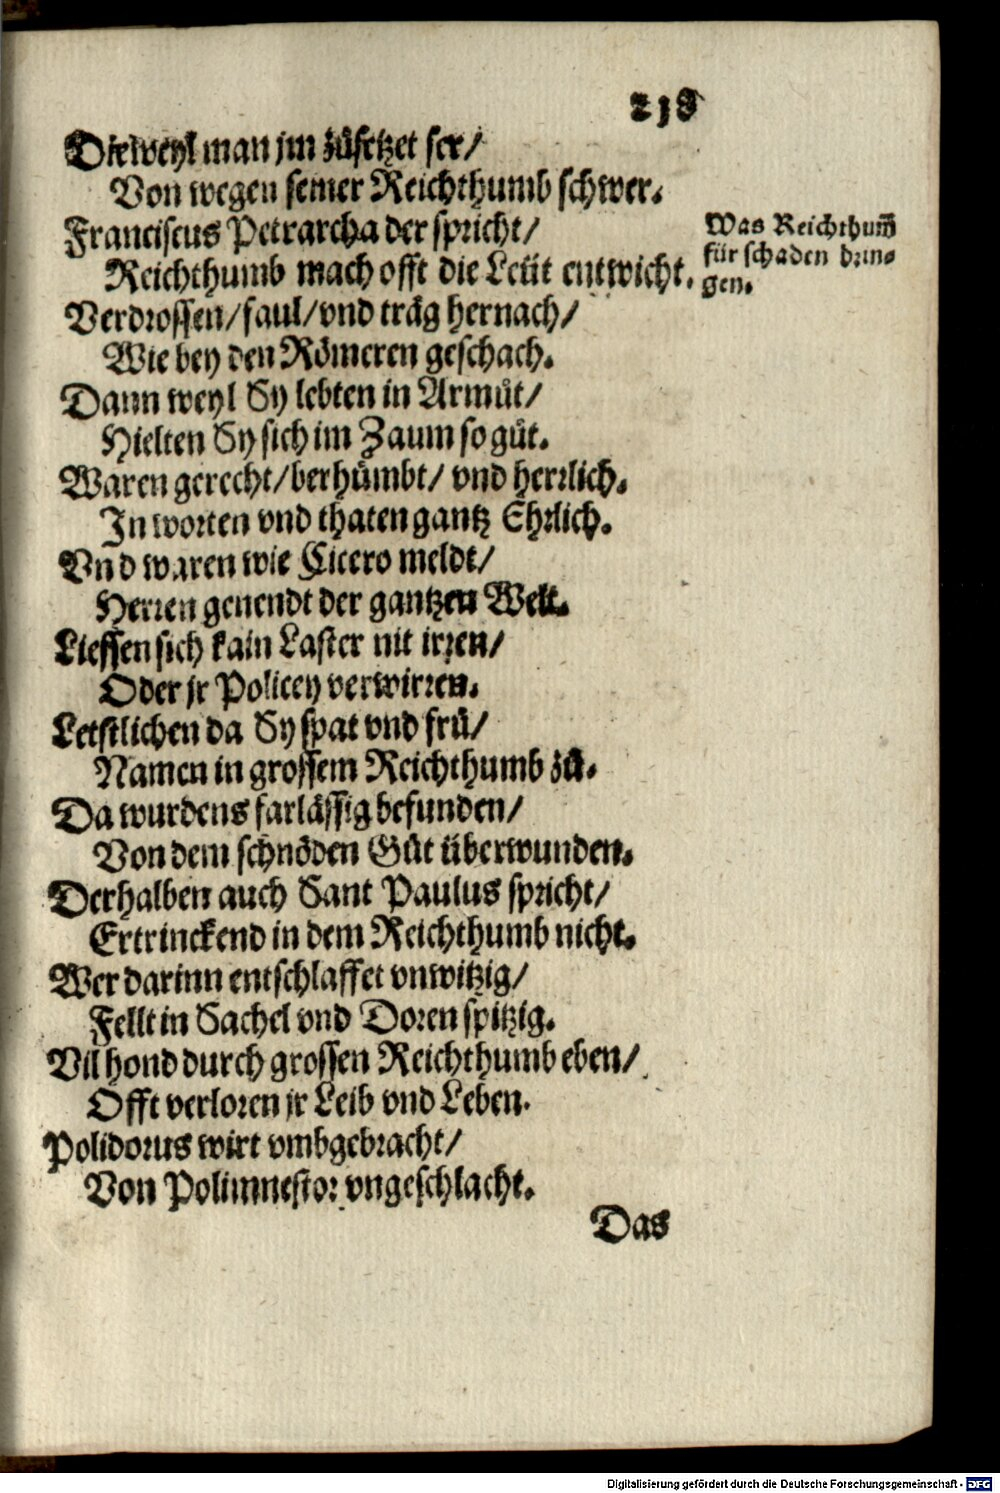 218
Dieweyl man jm zůsetzet ser/
Von wegen seiner Reichthumb schwer.
Franciscus Petrarcha der spricht/
Reichthumb mach offt die Leüt entwicht.
Was Reichthum̃
für schaden brin-
gen.
Verdrossen/faul/vnd träg hernach/
Wie bey den Römeren geschach.
Dann weyl Sy lebten in Armůt/
Hielten Sy sich im Zaum so gůt.
Waren gerecht/berhümbt/ vnd herrlich.
In worten vnd thaten gantz Ehrlich.
Vnd waren wie Cicero meldt/
Herren genendt der gantzen Welt.
Liessen sich kain Laster nit irren/
Oder jr Policey verwirren.
Letstlichen da Sy spat vnd frü/
Namen in grossem Reichthumb zů.
Da wurdens farlässig befunden/
Von dem schnöden Gůt überwunden.
Derhalben auch Sant Paulus spricht/
Ertrinckend in dem Reichthumb nicht.
Wer darinn entschlaffet vnwitzig/
Fellt in Sachel vnd Doren spitzig.
Vil hond durch grossen Reichthumb eben/
Offt verloren jr Leib vnd Leben.
Polidorus wirt vmbgebracht/
Von Polimnestor vngeschlacht.
Das
Digitalisierung gefördert durch die Deutsche Forschungsgemeinschaft - DFG